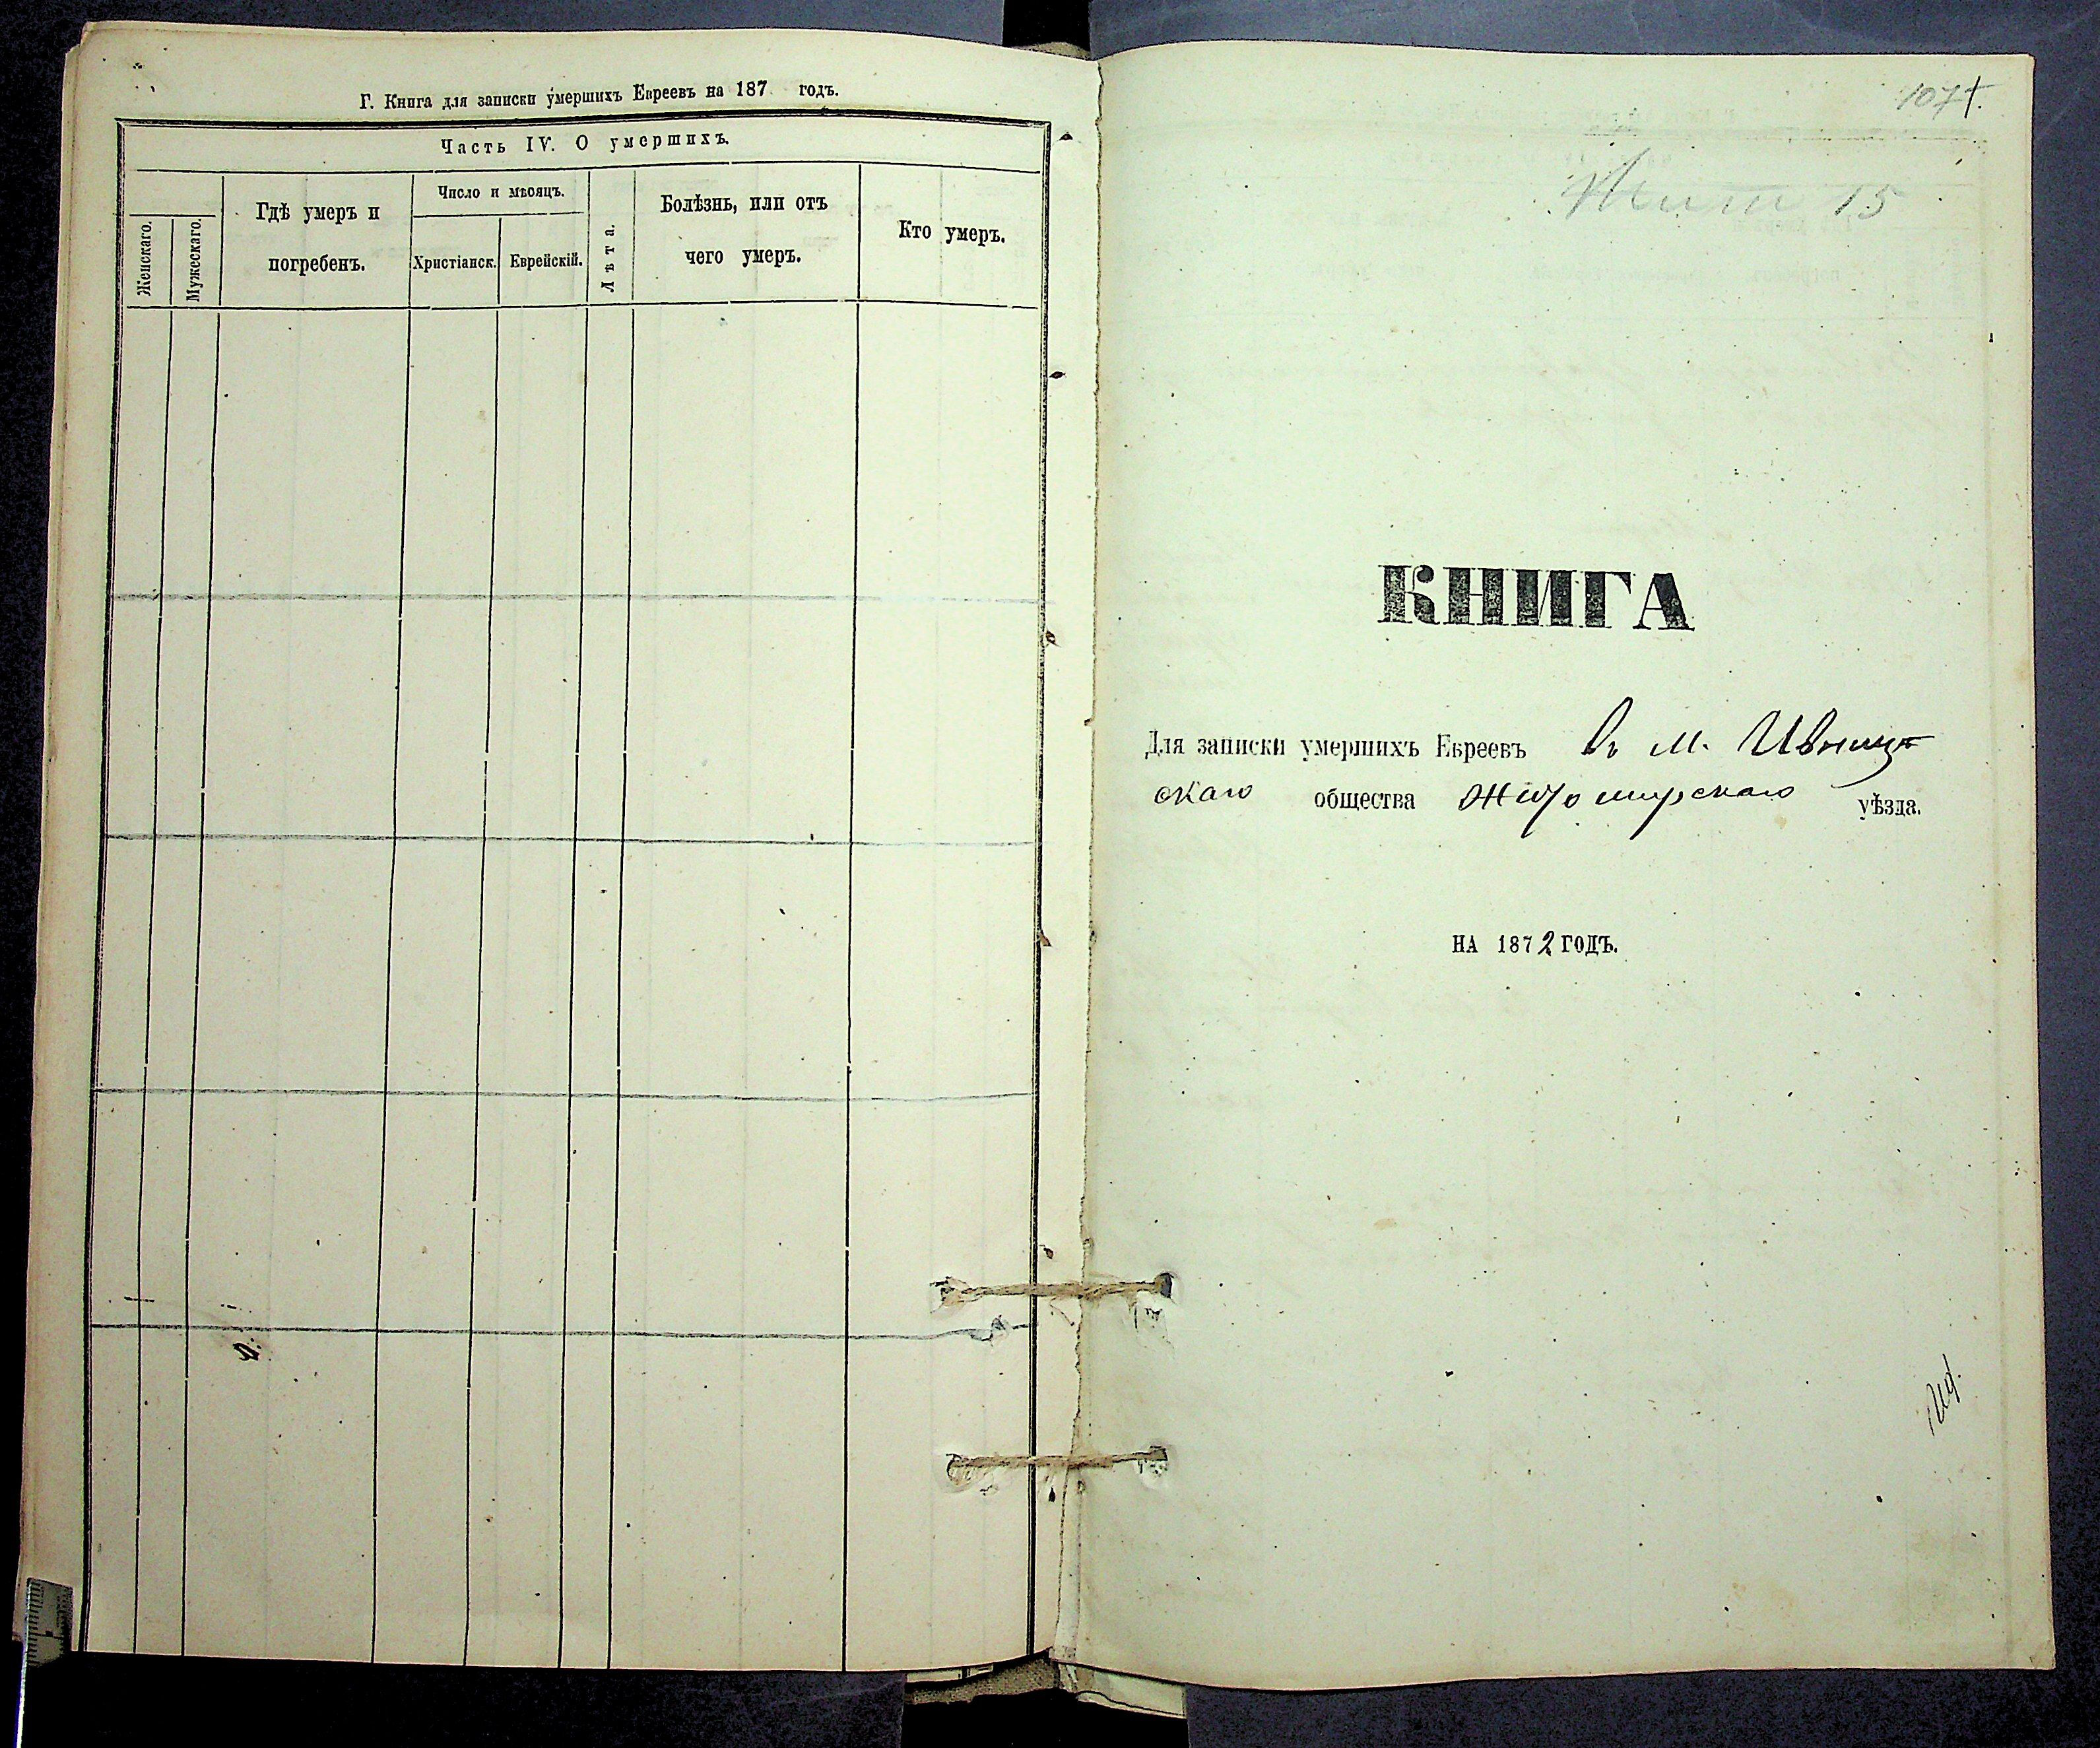 Г. Книга для записки умершихъ Евреевъ на 187 годъ.
Часть IV. О умершихъ.
Женскаго.
Мужескаго.
Гдѣ умеръ и
погребенъ.
Число и мѣсяцъ.
Христіанск.
Еврейскій.
Лѣта.
Болѣзнь, или отъ
чего умеръ.
Кто умеръ.
107
Жит 15
КНИГА
Для записки умершихъ Евреевъ въ м. Ивниц
скаго общества Житомирскаго уѣзда.
НА 1872 ГОДЪ.